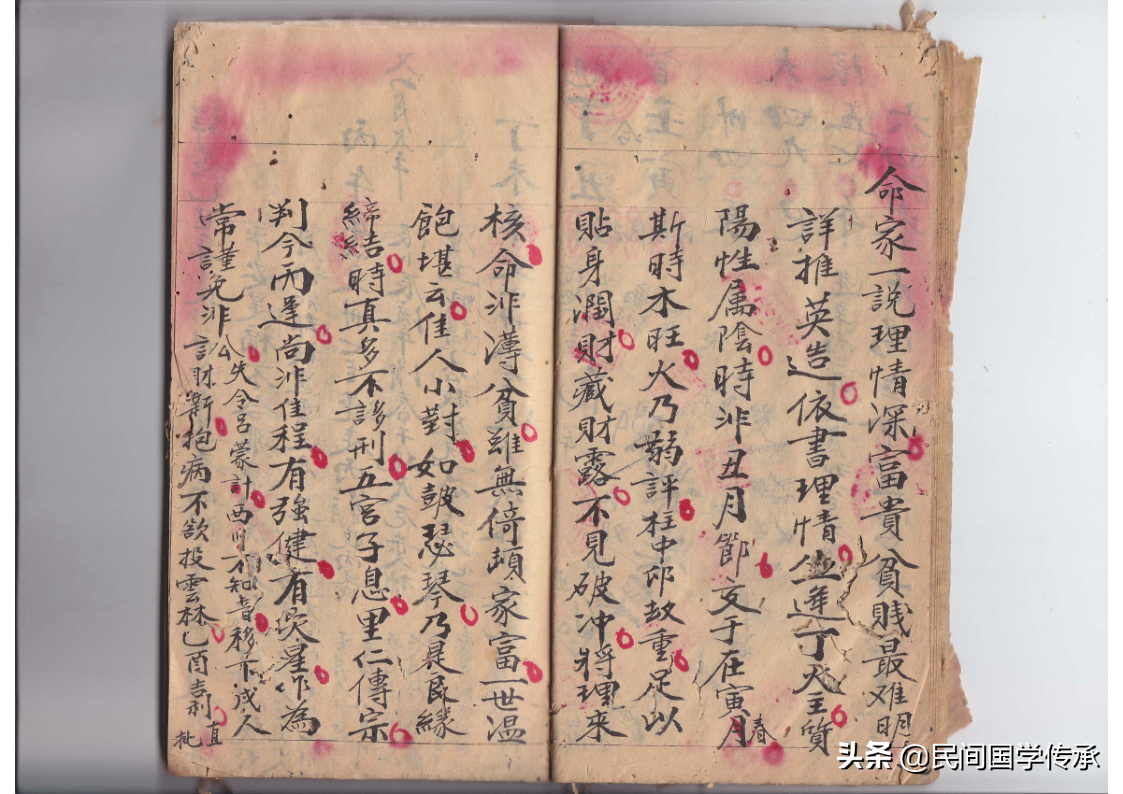 命家一說理情深富貴貧賤最难明
詳推英造依書理情並運丁火主質
陽性属陰時非丑月節交于在寅月春
斯時木旺火乃弱評柱中卯故重足以
貼身潤財藏財露不見破冲將理來
核命非薄貧雖無倚頼家富一世温
飽堪云佳人小對如鼓瑟琴乃是良緣
締結時真多不諺刑五宮子息里仁傳宗
判今而遲尚非佳程有強健有災星作為
常謹免非公失令呂蒙計西月不知音移下成人
財漸抱病不欲投雲林乙酉
直批
头条 @民间国学传承